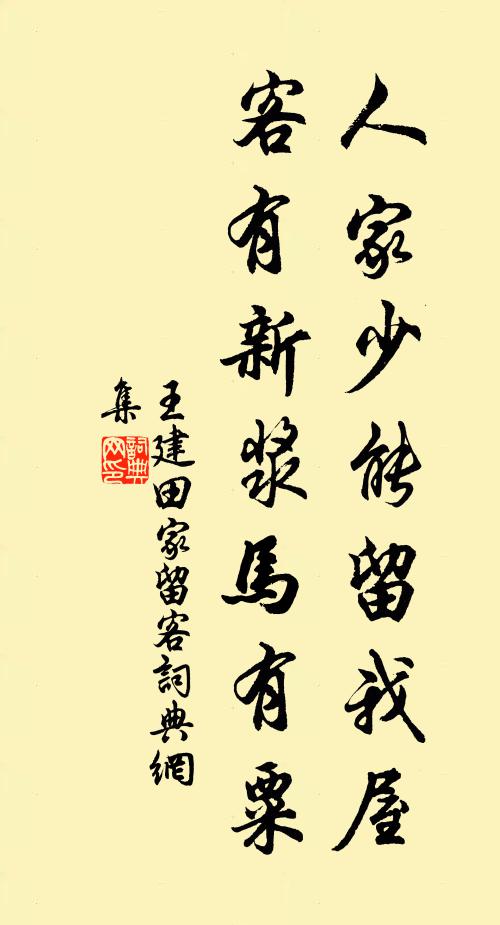 人家少能留我屋
客有新漿馬有粟
王建田家留客詞典網
集
詞典網印